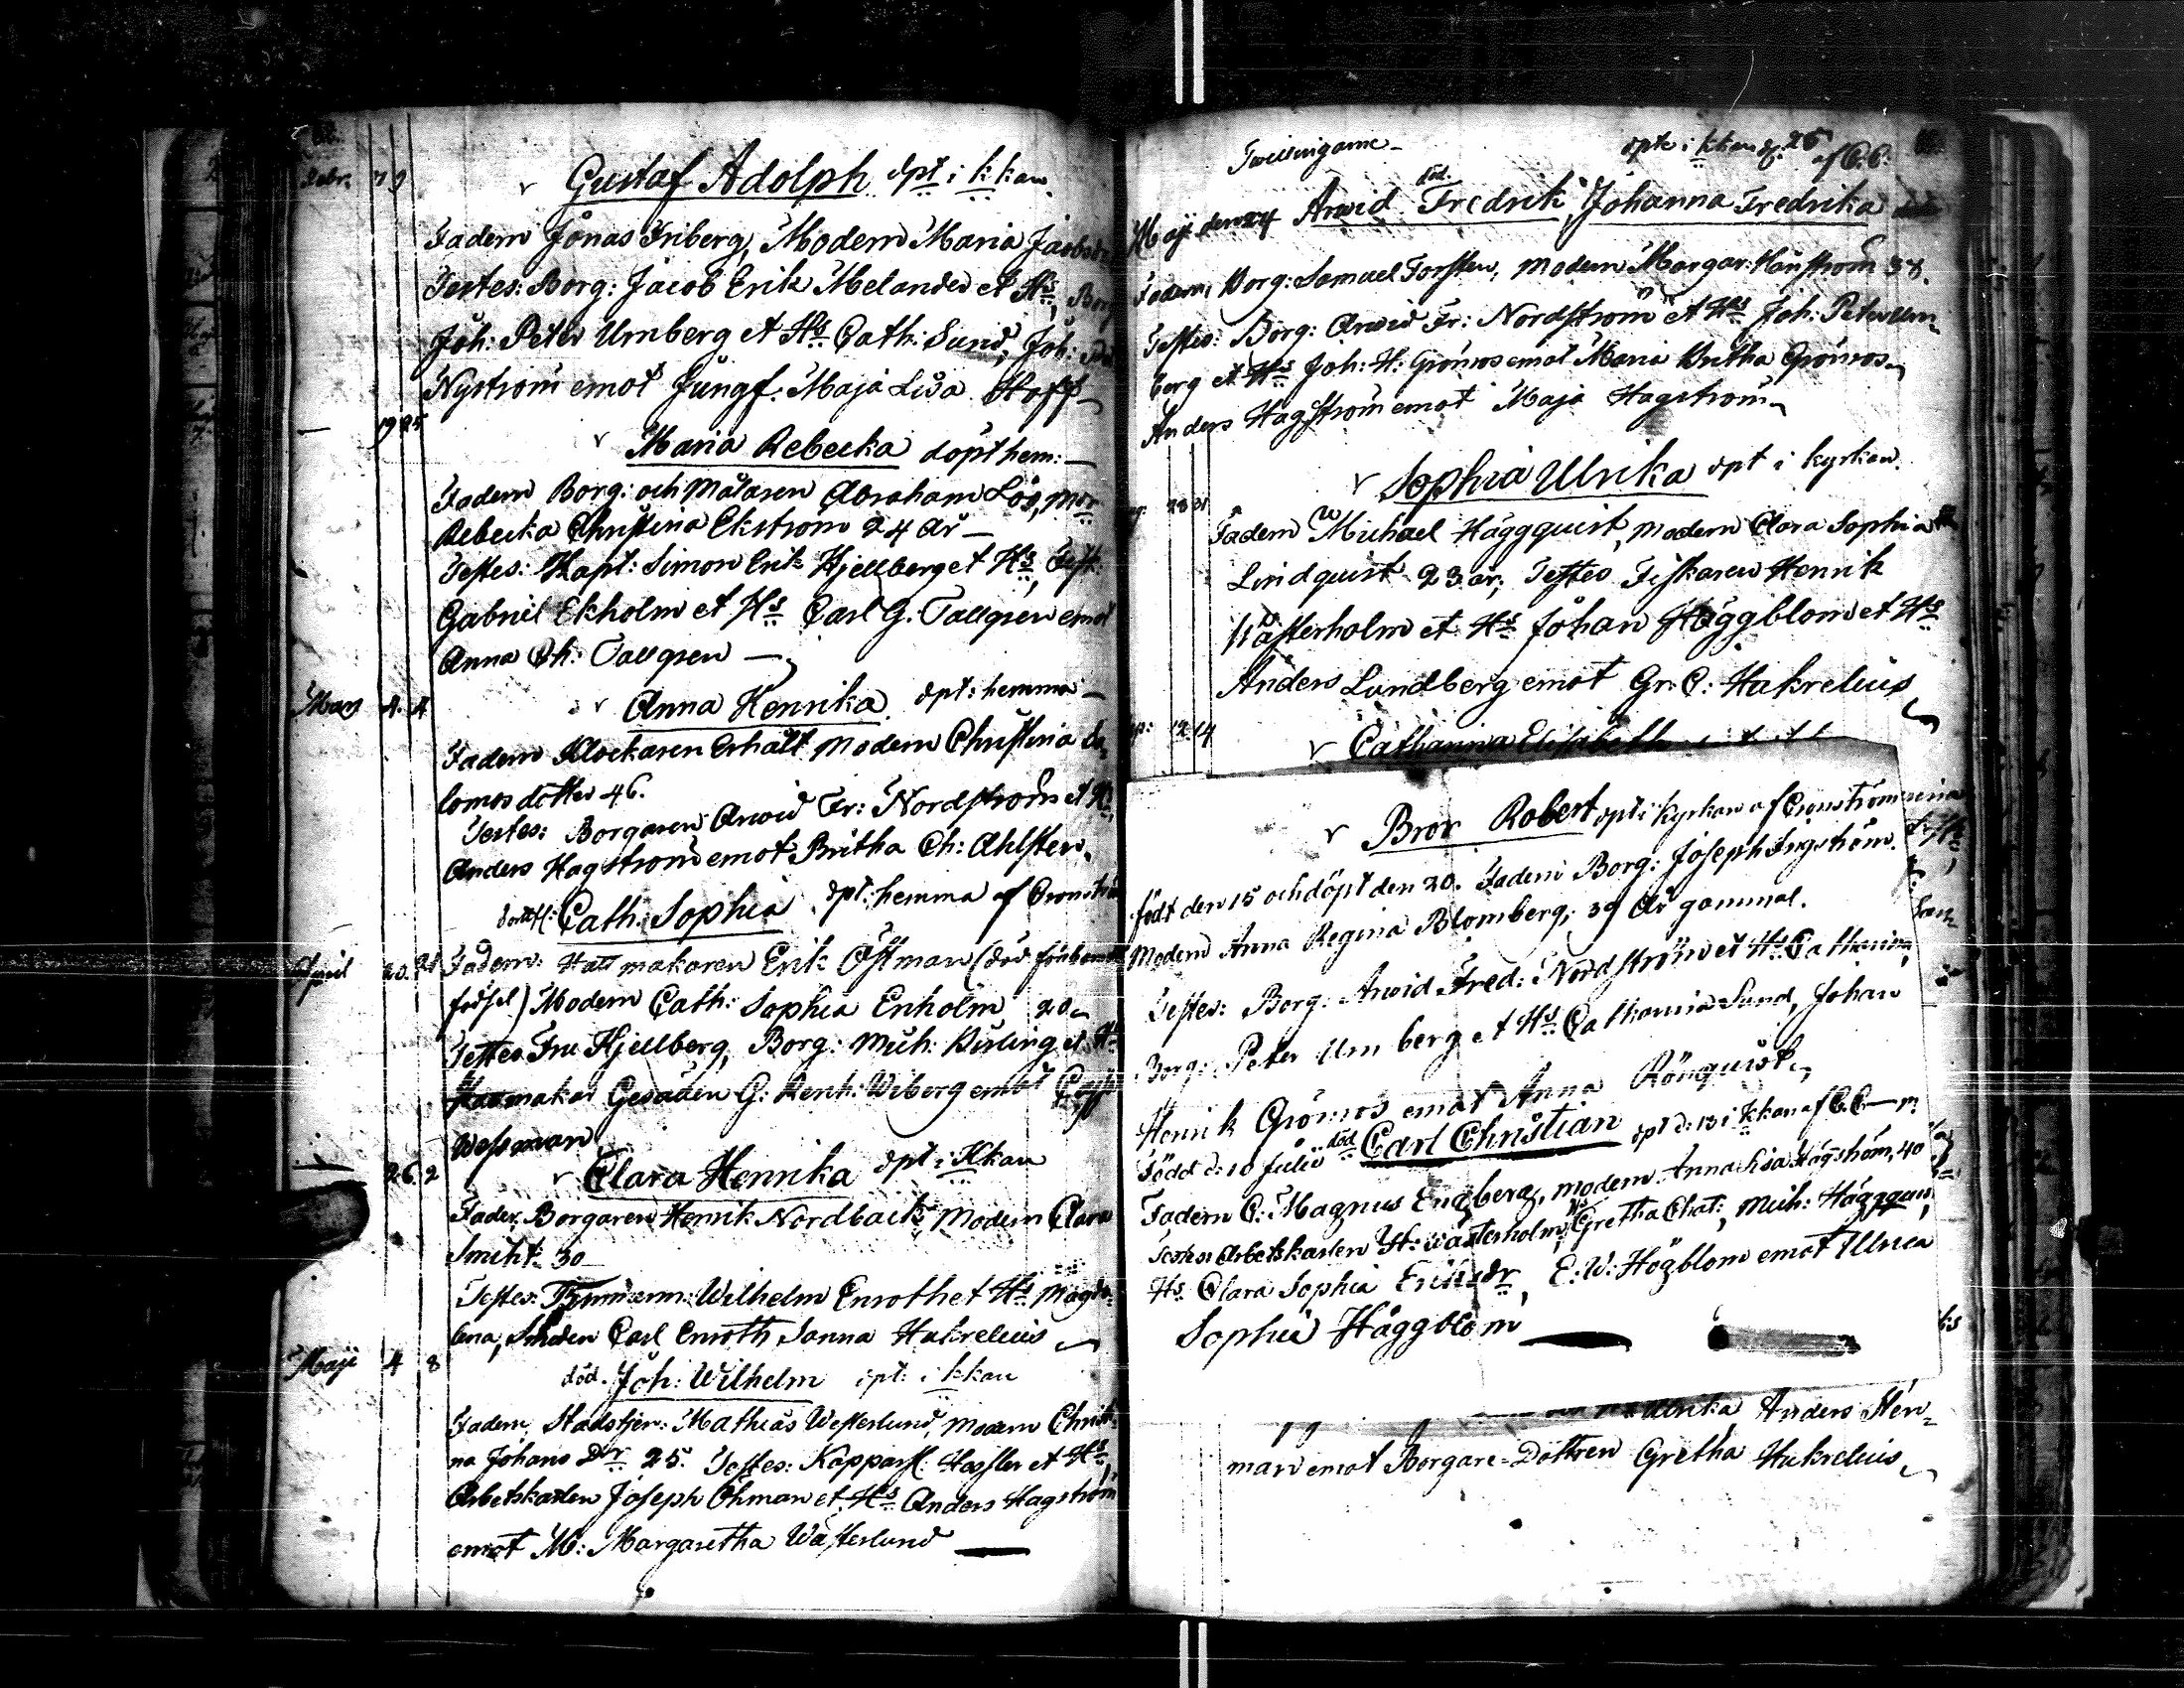 Febr. 7 9 Gustaf Adolph dpt i k:kan
Fadern Jonas Friberg, Modern Maria Jacobsdr
Testes: Borg: Jacob Erik Melander et Hs, Borg
Joh: Peter Urnberg et Hs Cath: Sund, Joh:
Nyström emot Jungf. Maja Lisa Hoff
19 25 Maria Rebecka döpt hem:
Fadern Borg: och Målaren Abraham Löö, Mor
Rebecka Christina Ekström 24 år
Testes: Kapt: Simon Erik Hjellberg et Hs,
Gabriel Ekholm et Hs Carl G. Tallgren emot
Anna Ch: Tallgren
4. 4 Anna Henrika dpt: hemma
Fadern Klockaren Erhalt Modern Christina
lomos dotter 46.
Testes: Borgaren Arvid Fr: Nordström et Hs,
Anders Hagström emot Britha Ch: Ahlsten.
Cath: Sophia dpt: hemma af Cronström
April 20. 21 Fadern: Hattmakaren Erik Östman (död för barnets
födsel) Modern Cath: Sophia Enholm 20
Testes Fru Hjellberg, Borg: Mich: Kisling et Hs
makar Gesällen G: Renh: Wiberg emot
Wessman
26 2 Clara Henrika dpt i Kkan
Fader Borgaren Henrik Nordback Modern Clara
Smiht 30
Testes: Timmerm: Wilhelm Enroth et Hs Magda-
lena, Smeden Carl Enroth Sanna Hakrelius
Maji 4 8 död. Joh: Wilhelm dpt: i k:kan
Fadern, Stadstjen: Mathias Westerlund, Modern Christi
na Johans Dr 25. Testes: Kopparsl: Hassler et Hs,
Arbetskarlen Joseph Öhman et Hs Anders Hagström
emot M: Margaretha Wästerlund
Twillingarne dpte i kkan d. 25 af C.C.
död.
Maji den 24 Arvid Fredrik, Johanna Fredrika
Fadern, Borg: Samuel Forsten, Modern Margar: 38.
Testes: Borg: Arvid Fr: Nordström et Hs Joh: Peter Urn-
berg et Hs Joh: H: Grönros emot Maria Britha Grönros
Anders Hagström emot Maja Hagström
28 31 Sophia Ulrika dpt i kyrkan.
Fadern Michael Häggquist, Modern Clara Sophia
Lindquist 23 år, Testes Fiskaren Henrik
Wästerholm et Hs Johan Häggblom et Hs
Anders Lundberg emot Gr: C: Hakrelius
12 14 Catharina Elisabeth
Bror Robert dpt i kyrkan af Cronström
född den 15 och döpt den 20. Fadern Borg: Joseph Engström.
Modern Anna Regina Blomberg, 39 år gammal.
Testes: Borg: Arvid Fred: Nordström et Hs Catharina,
Borg: Peter Urnberg et Hs Catharina Sund, Johan
Henrik Grönros emot Anna Rönquist
Född d: 10 Julii död Carl Christian dpt d: 13 i Kkan af C.C.
Fadern C: Magnus Engberg, Modern Anna Lisa Hägström, 40
Testes Arbetskarlen H: Wästerholm, Hs Gretha Chat:, Mich: Häggquist,
Hs Clara Sophia Eriksdr, E: W: Högblom emot Ulrica
Sophia Häggblom
Ulrika, Anders Hen-
man emot Borgare-Dottren Gretha Hakrelius